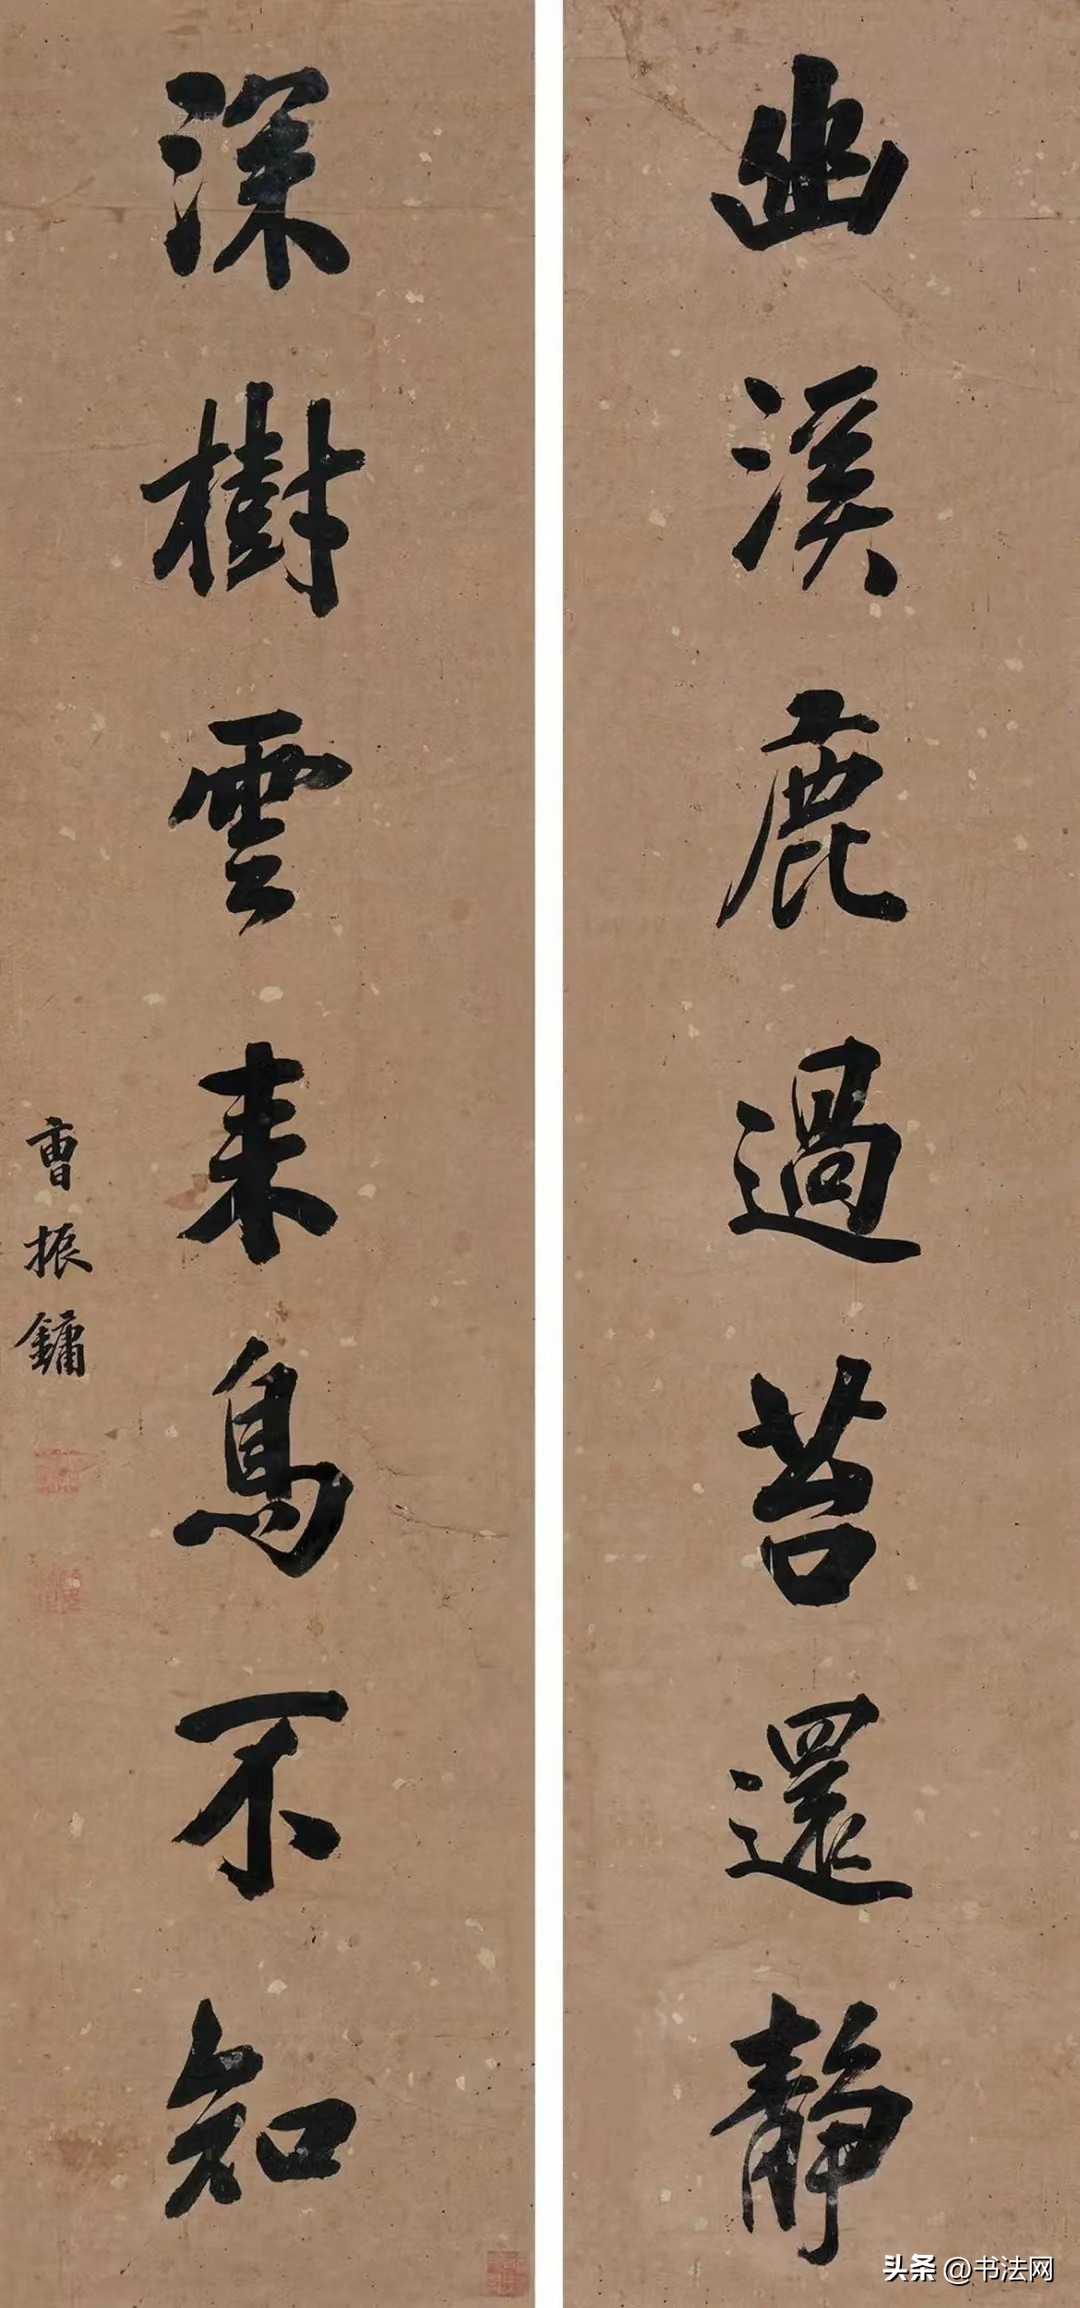 幽溪鹿過苔還靜
深樹雲来鳥不知
曹振鏞
头条 @书法网